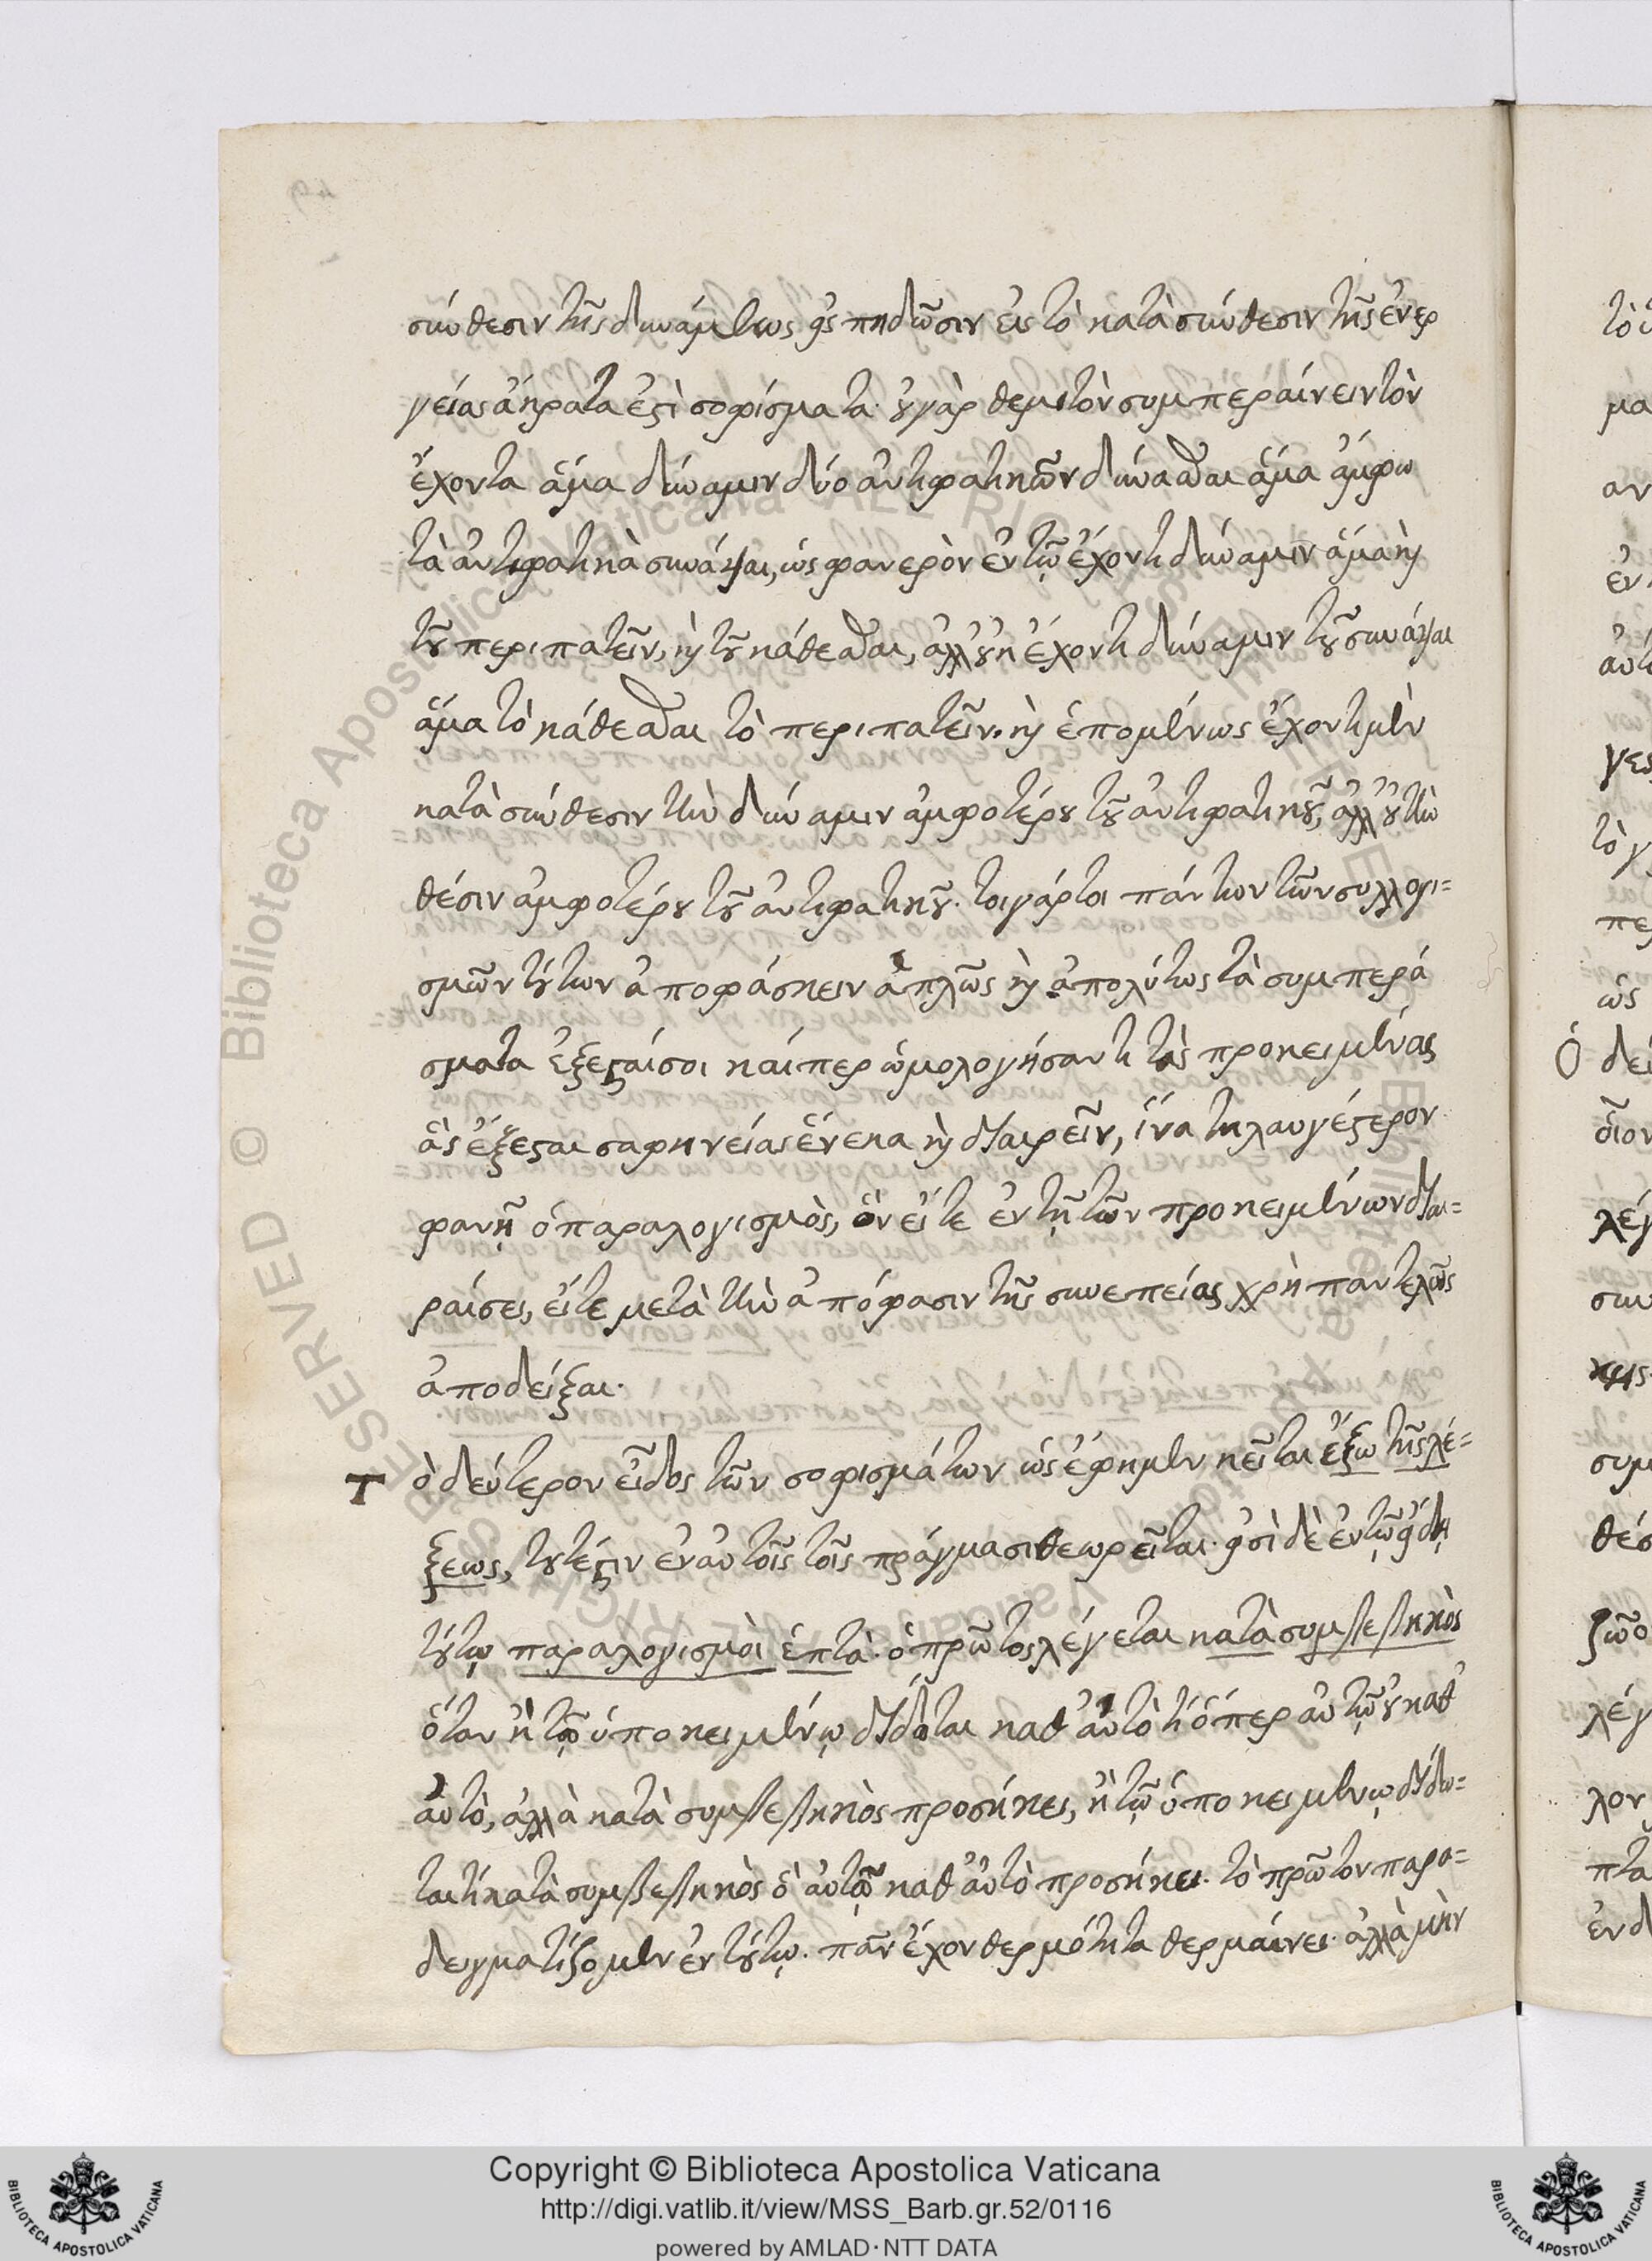 σύνθεσιν τῆς δυνάμεως ὡς πηδῶσιν εἰς τὸ κατὰ σύνθεσιν τῆς ἐνερ
γείας ἄκρατα ἐστὶ σοφίσματα· οὐ γὰρ θεμιτὸν συμπεραίνειν τὸν
ἔχοντα ἅμα δύναμιν δύο ἀντιφατικῶν δύνασθαι ἅμα ἄμφω
τὰ ἀντιφατικὰ συνάψαι, ὡς φανερὸν ἐν τῷ ἔχοντι δύναμιν ἅμα καὶ
τοῦ περιπατεῖν, καὶ τοῦ κάθεσθαι, ἀλλ' οὐκ ἔχοντι δύναμιν τοῦ συνάψαι
ἅμα τὸ κάθεσθαι τὸ περιπατεῖν. καὶ ἑπομένως ἔχοντι μὲν
κατὰ σύνθεσιν τὴν δύναμιν ἀμφοτέρου τοῦ ἀντιφατικοῦ, ἀλλ' οὐ τὴν
θέσιν ἀμφοτέρου τοῦ ἀντιφατικοῦ. τοιγάρτοι πάντων τῶν συλλογι=
σμῶν τούτων ἀποφάσκειν ἁπλῶς καὶ ἀπολύτως τὰ συμπερά
σματα ἔξεσταί σοι καίπερ ὡμολογήσαντι τὰς προκειμένας
ἃς ἔξεσται σαφηνείας ἕνεκα καὶ διαιρεῖν, ἵνα τηλαυγέστερον
φανῇ ὁ παραλογισμὸς, ὃν εἴτε ἐν τῇ τῶν προκειμένων διαι=
ραίσει, εἴτε μετὰ τὴν ἀπόφασιν τῆς συνεπείας χρὴ παντελῶς
ἀποδεῖξαι.
Τὸ δεύτερον εἶδος τῶν σοφισμάτων ὡς ἔφημεν κεῖται ἔξω τῆς λέ=
ξεως, τουτέστιν ἐν αὐτοῖς τοῖς πράγμασι θεωρεῖται· εἰσὶ δὲ ἐν τῷ εἴδει
τούτῳ παραλογισμοὶ ἑπτὰ· ὁ πρῶτος λέγεται κατὰ συμβεβηκὸς
ὅταν ἢ τῷ ὑποκειμένῳ δίδοται καθ' αὑτὸ τί ὅπερ αὐτῷ οὐ καθ'
αὑτὸ, ἀλλὰ κατὰ συμβεβηκὸς προσήκει, ἢ τῷ ὑποκειμένῳ δίδο=
ται τί κατὰ συμβεβηκὸς ὃ αὐτῷ καθ' αὑτὸ προσήκει. τὸ πρῶτον παρα=
δειγματίζομεν ἐν τούτῳ. πᾶν ἔχον θερμότητα θερμαίνει. ἀλλὰ μὴν